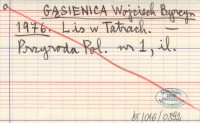 a
GĄSIENICA Wojciech Byrcyn
1976. Lis w Tatrach. —
Przyroda Pol. nr 1, il.